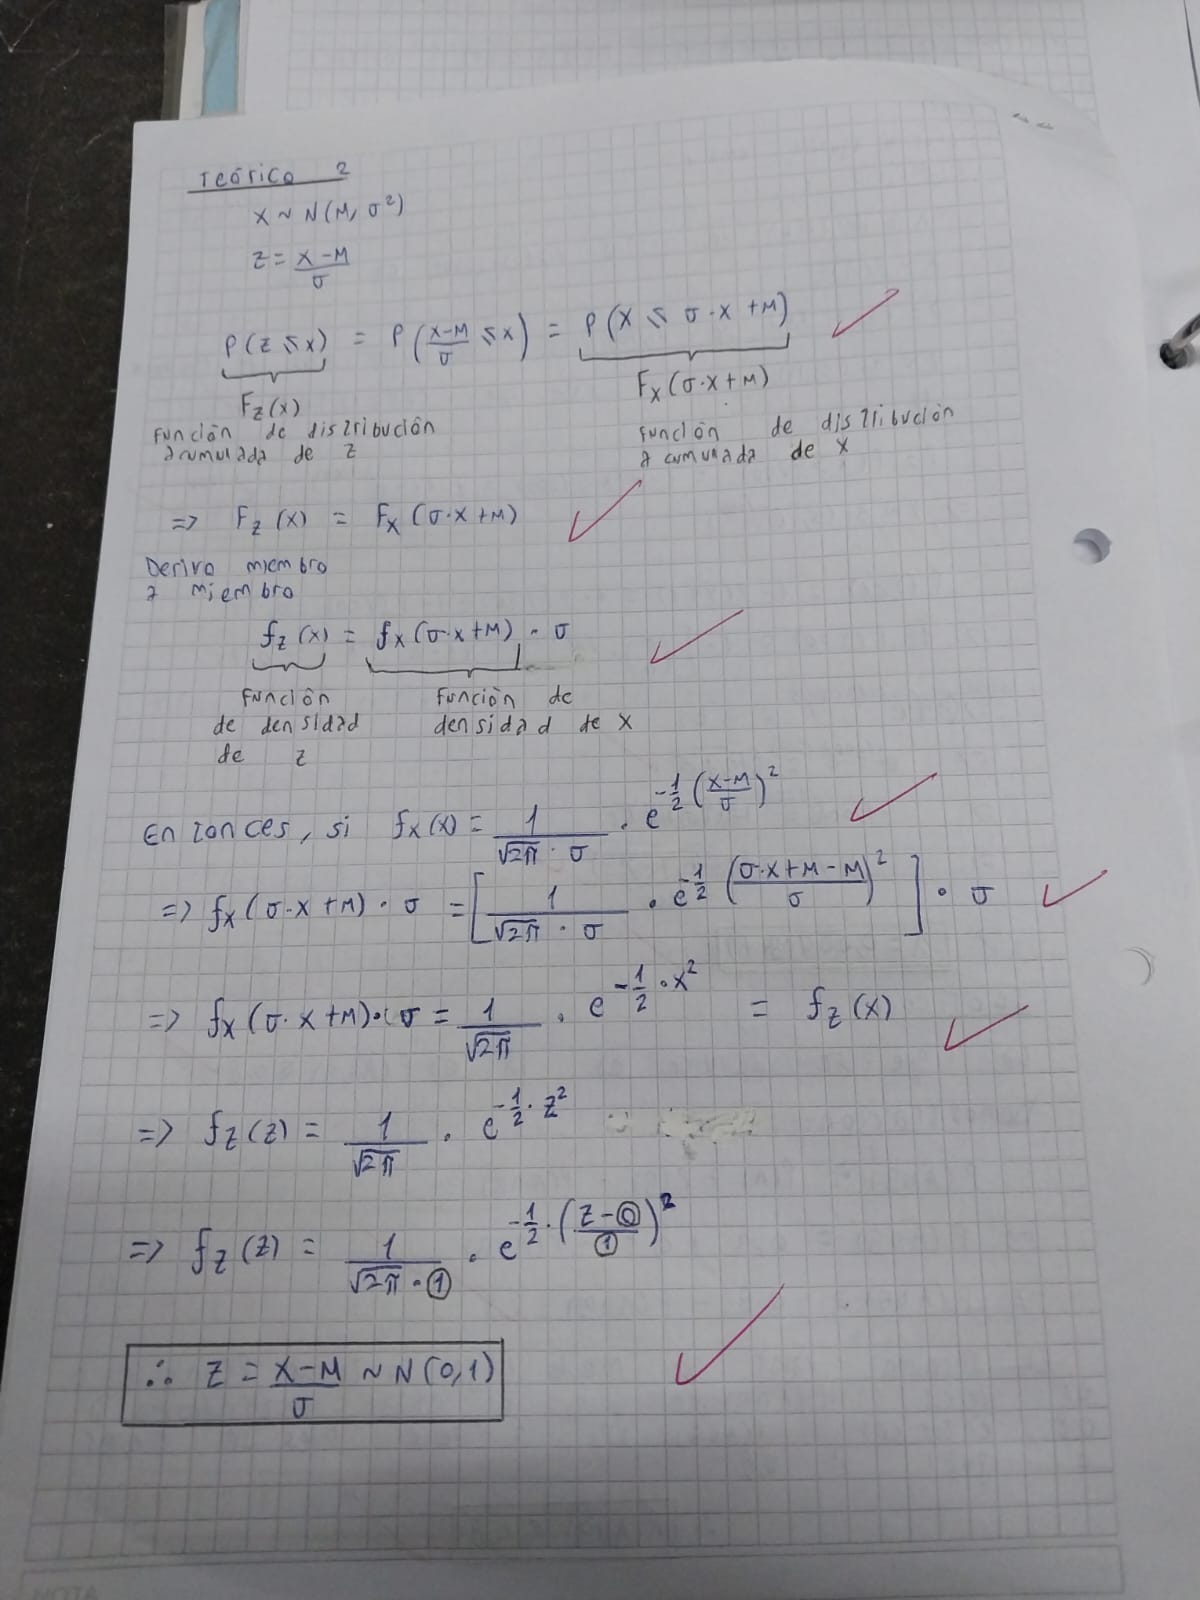 Teórico 2
X ~ N(M, σ²)
Z = (X-M)/σ
P(Z ≤ x) = P((X-M)/σ ≤ x) = P(X ≤ σ·x + M)
F_Z(x) F_X(σ·x+M)
Función de distribución función de distribución
acumulada de Z acumulada de X
=> F_Z(x) = F_X(σ·x+M)
Derivo miembro
a miembro
f_Z(x) = f_X(σ·x+M) · σ
Función Función de
de densidad densidad de X
de Z
Entonces, si f_X(x) = 1/(√2π · σ) · e^(-1/2 ((x-M)/σ)²)
=> f_X(σ·x+M) · σ = [1/(√2π · σ) · e^(-1/2 ((σ·x+M-M)/σ)²)] · σ
=> f_X(σ·x+M)·σ = 1/√2π · e^(-1/2·x²) = f_Z(x)
=> f_Z(z) = 1/√2π · e^(-1/2·z²)
=> f_Z(z) = 1/(√2π·1) · e^(-1/2·((z-0)/1)²)
∴ Z = (X-M)/σ ~ N(0,1)